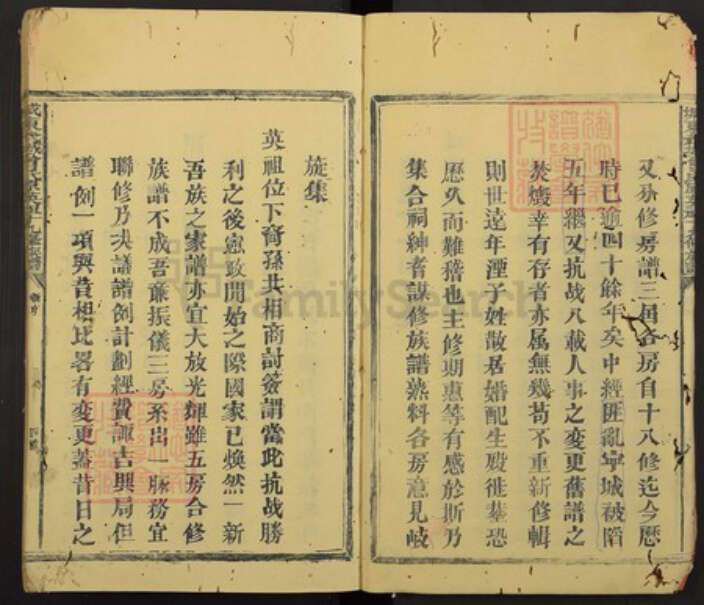 又分修房譜三屆各房自十八修迄今歷
時已逾四十餘年矣中經匪亂寧城被陷
五年繼又抗战八載人事之変更舊譜之
焚燬幸有存者亦属無幾苟不重新修輯
則世遠年湮子姓散居婚配生殁徙塟恐
歷久而難稽也主修期惠等有感於斯乃
集合祠紳耆謀修族譜熟料各房意見岐
旋集
英祖位下裔孫共相商討簽謂當此抗战勝
利之後憲政開始之際國家已煥然一新
吾族之家譜亦宜大放光煇雖五房合修
族譜不成吾兼振儀三房系出一脉務宜
聯修乃決議譜例計劃經費諏吉興局但
譜例一項與昔相比畧有変更葢昔日之
FamilySearch